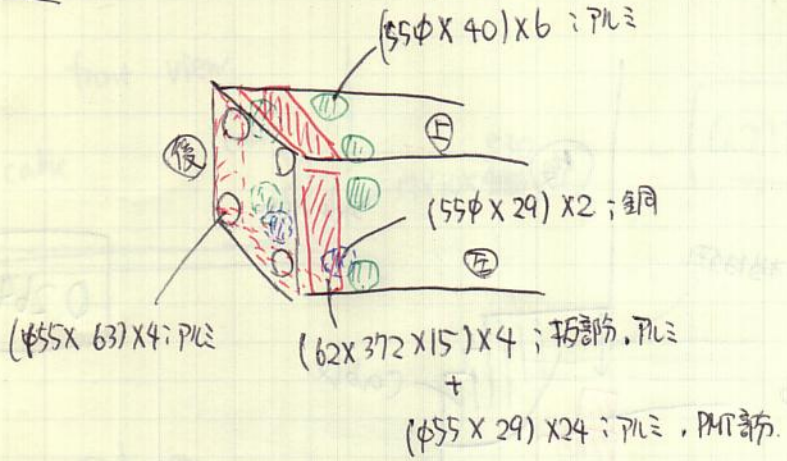 (55φ×40)×6 ; アルミ
上
後
(55φ×29)×2 ; 銅
左
(φ55×63)×4 ; アルミ
(62×372×15)×4 ; 板部分, アルミ
+
(φ55×29)×24 ; アルミ, PMT部分.